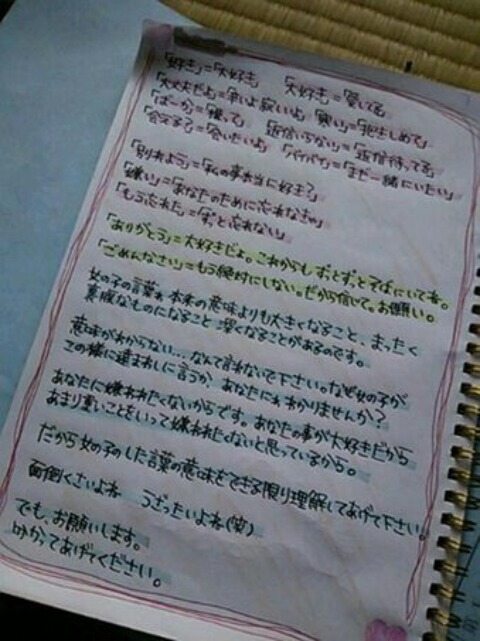 「好き」=「大好き」 「大好き」=「愛してる」
「大丈夫だよ」=「辛いよ寂しいよ」「寒い」=「抱きしめて」
「ばーか」=「構って」 「返信いらない」=「返信待ってる」
「会える?」=「会いたいよ」 「バイバイ」=「まだ一緒にいたい」
「別れよう」=「私の事本当に好き?」
「嫌い」=「あなたのために忘れなきゃ」
「もう忘れた」=「ずっと忘れない」
「ありがとう」=大好きだよ。これからもずっとずっとそばにいてね。
「ごめんなさい」=もう絶対にしない。だから信じて。お願い。
女の子の言葉は本来の意味よりも大きくなること、まったく
真逆なものになること、深くなることがあるのです。
意味がわからない…なんて言わないで下さい。なぜ女の子が
この様に遠まわしに言うか、あなたにもわかりませんか?
あなたに嫌われたくないからです。あなたの事が大好きだから
あまり重いことをいって嫌われたくないと思っているから。
だから女の子のした言葉の意味をできる限り理解してあげて下さい。
面倒くさいよね うざったいよね(笑)
でも、お願いします。
分かってあげてください。